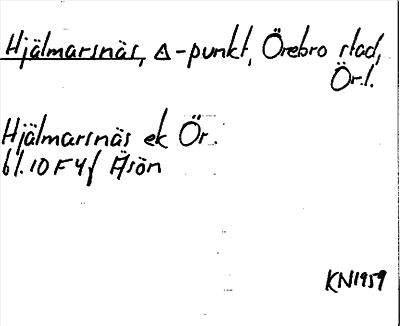 Hjälmarsnäs, Δ-punkt, Örebro stad,
Ör.l.
Hjälmarsnäs ek Ör.
bl. 10 F 4 f Äsön
KN1959